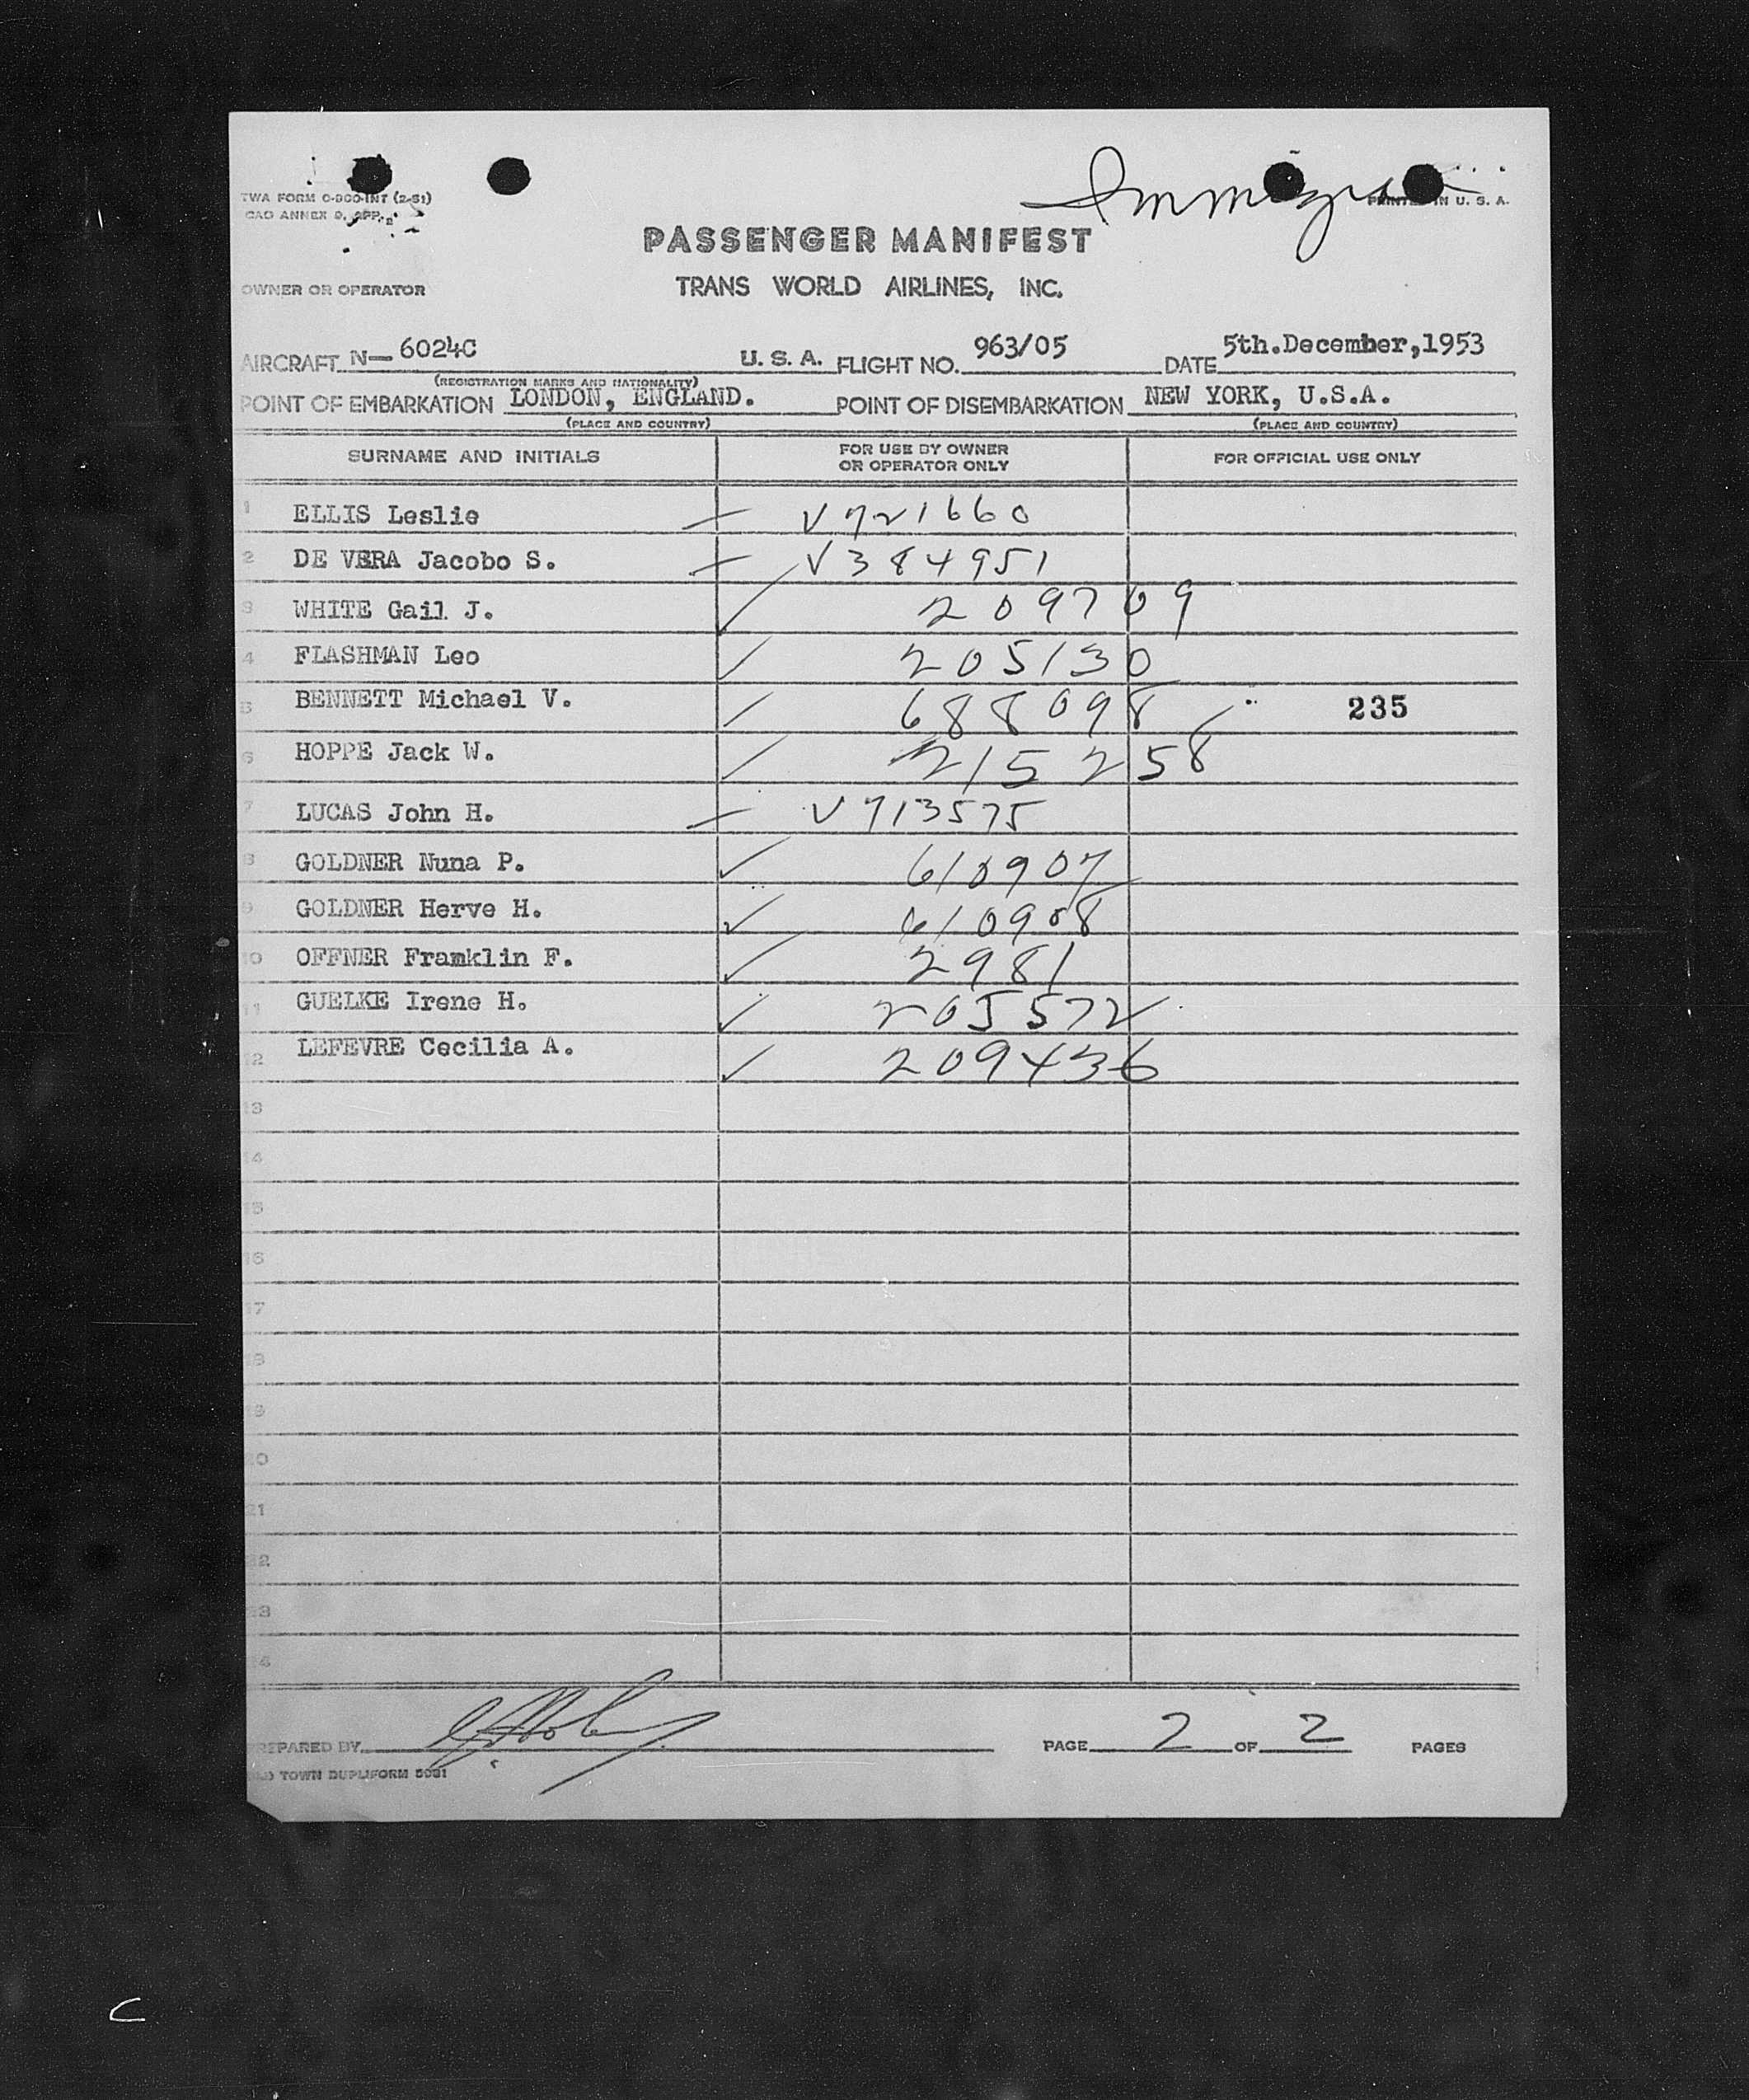 TWA FORM O-900-INT (2-51)
PRINTED IN U. S. A.
CAO ANNEX 9, APP. 2
PASSENGER MANIFEST
OWNER OR OPERATOR
TRANS WORLD AIRLINES, INC.
AIRCRAFT N— 6024C U. S. A. FLIGHT NO. 963/05 DATE 5th.December,1953
(REGISTRATION MARKS AND NATIONALITY)
POINT OF EMBARKATION LONDON, ENGLAND. POINT OF DISEMBARKATION NEW YORK, U.S.A.
(PLACE AND COUNTRY) (PLACE AND COUNTRY)
SURNAME AND INITIALS FOR USE BY OWNER OR OPERATOR ONLY FOR OFFICIAL USE ONLY
1 ELLIS Leslie — V721660
2 DE VERA Jacobo S. — V384951
3 WHITE Gail J. ✓ 209709
4 FLASHMAN Leo ✓ 205130
5 BENNETT Michael V. ✓ 688098 235
6 HOPPE Jack W. ✓ 215258
7 LUCAS John H. — V713575
8 GOLDNER Nuna P. ✓ 610907
9 GOLDNER Herve H. ✓ 610908
10 OFFNER Framklin F. ✓ 2981
11 GUELKE Irene H. ✓ 205572
12 LEFEVRE Cecilia A. ✓ 209436
13
14
15
16
17
18
19
20
21
22
23
24
PREPARED BY PAGE 2 OF 2 PAGES
TOWN DUPLIFORM 5081
C